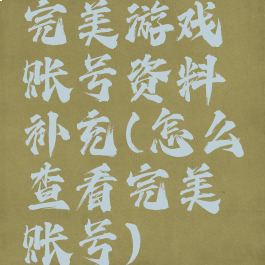 完美游戏
账号资料
补充(怎么
查看完美
账号)